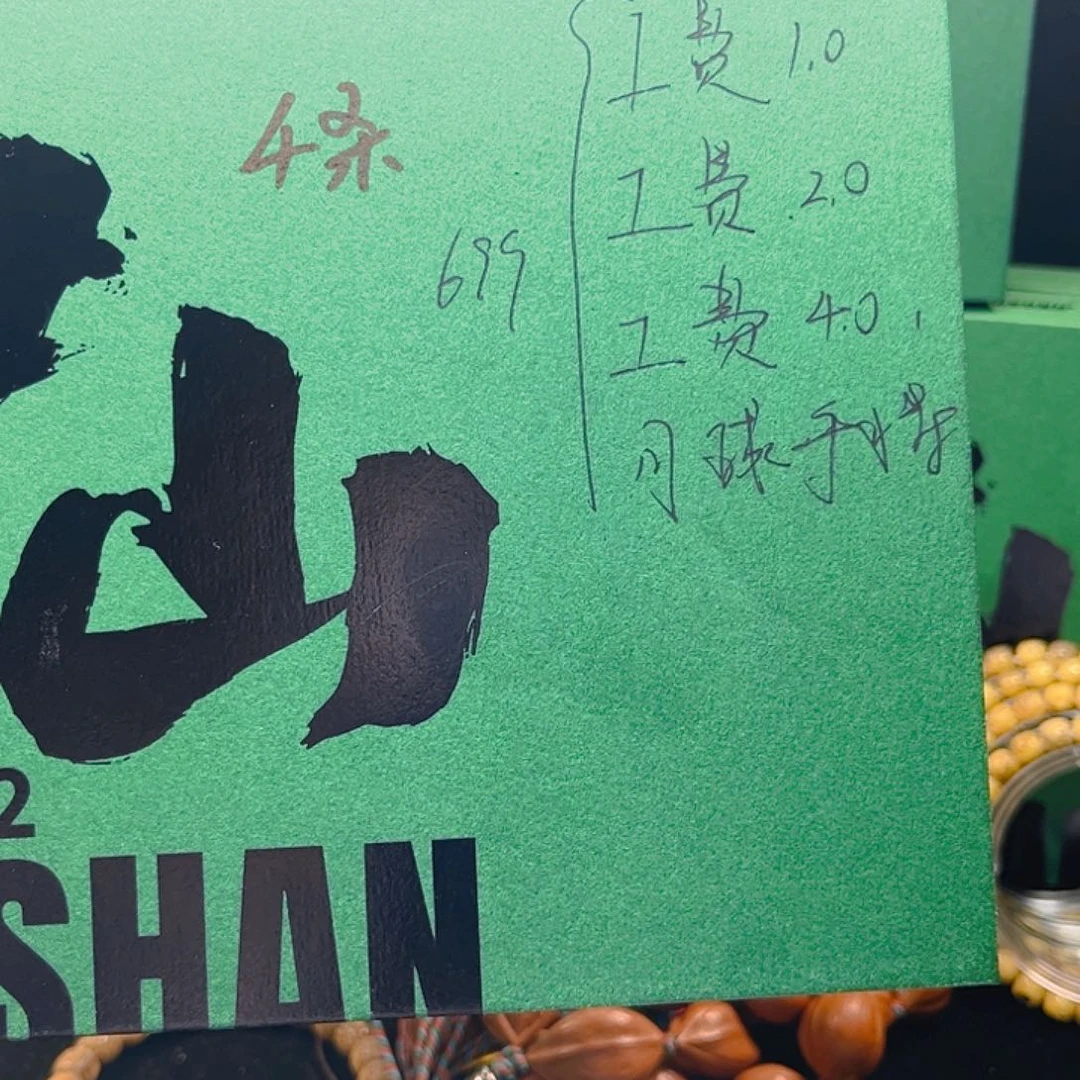 工费 1.0
4条
工费 2.0
699
工费 4.0
月球手持
山
2
SHAN